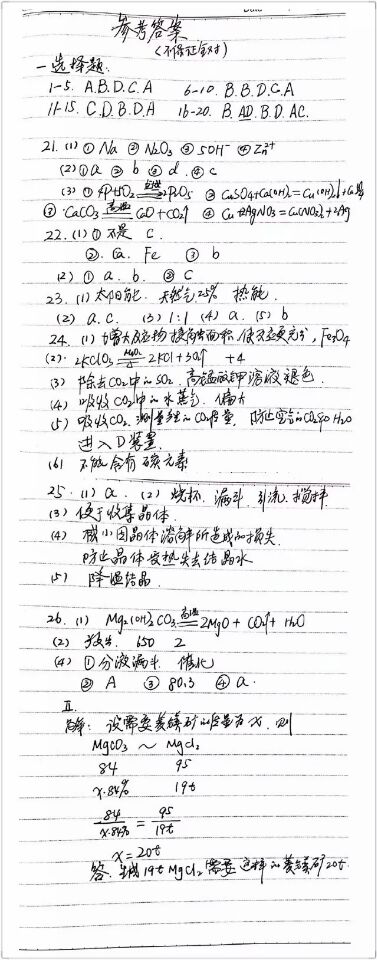 参考答案
(不保证全对)
一选择题.
1-5. A.B.D.C.A 6-10. B.B.D.C.A
11-15. C.D.B.D.A 16-20. B.AD.B.D.AC.
21. (1) ① Na ② N₂O₃ ③ 5OH⁻ ④ Zn²⁺
(2) ① a ② b ③ d ④ c
(3) ① 4P+5O₂ 点燃 2P₂O₅ ② CuSO₄+Ca(OH)₂=Cu(OH)₂↓+
③ CaCO₃ 高温 CaO+CO₂↑ ④ Cu+2AgNO₃=Cu(NO₃)₂+2Ag
22. (1) ① 不是 C.
②. Ca. Fe ③ b
(2) ① a. b. ② C
23. (1) 太阳能. 天然气 25% 热能.
(2) a.c. (3) 1:1 (4) a. (5) b
24. (1) 增大反应物接触面积,使反应更充分, Fe₃O₄
(2). 2KClO₃ MnO₂ △ 2KCl+3O₂↑ +4
(3) 除去CO₂中的SO₂. 高锰酸钾溶液褪色.
(4) 吸收CO₂中的水蒸气. 偏大
(5) 吸收CO₂, 测量生的CO₂质量, 防止空气的CO₂和H₂O
进入D装置.
(6) 不能含有碳元素
25. (1) a. (2) 烧杯. 漏斗. 引流. 搅拌
(3) 便于收集晶体
(4) 减小因晶体溶解所造成的损失.
防止晶体受热失去结晶水
(5) 降温结晶.
26. (1) Mg₂(OH)₂CO₃ 高温 2MgO+CO₂↑+H₂O
(2) 650 2
(4) ① 分液漏斗. 催化
② A ③ 80.3 ④ a.
II.
解: 设需要菱镁矿的质量为x, 则
MgCO₃ ～ MgCl₂
84 95
x·84% 19t
84/x·84% = 95/19t
x=20t
答. 生成19t MgCl₂需要这样的菱镁矿20t.